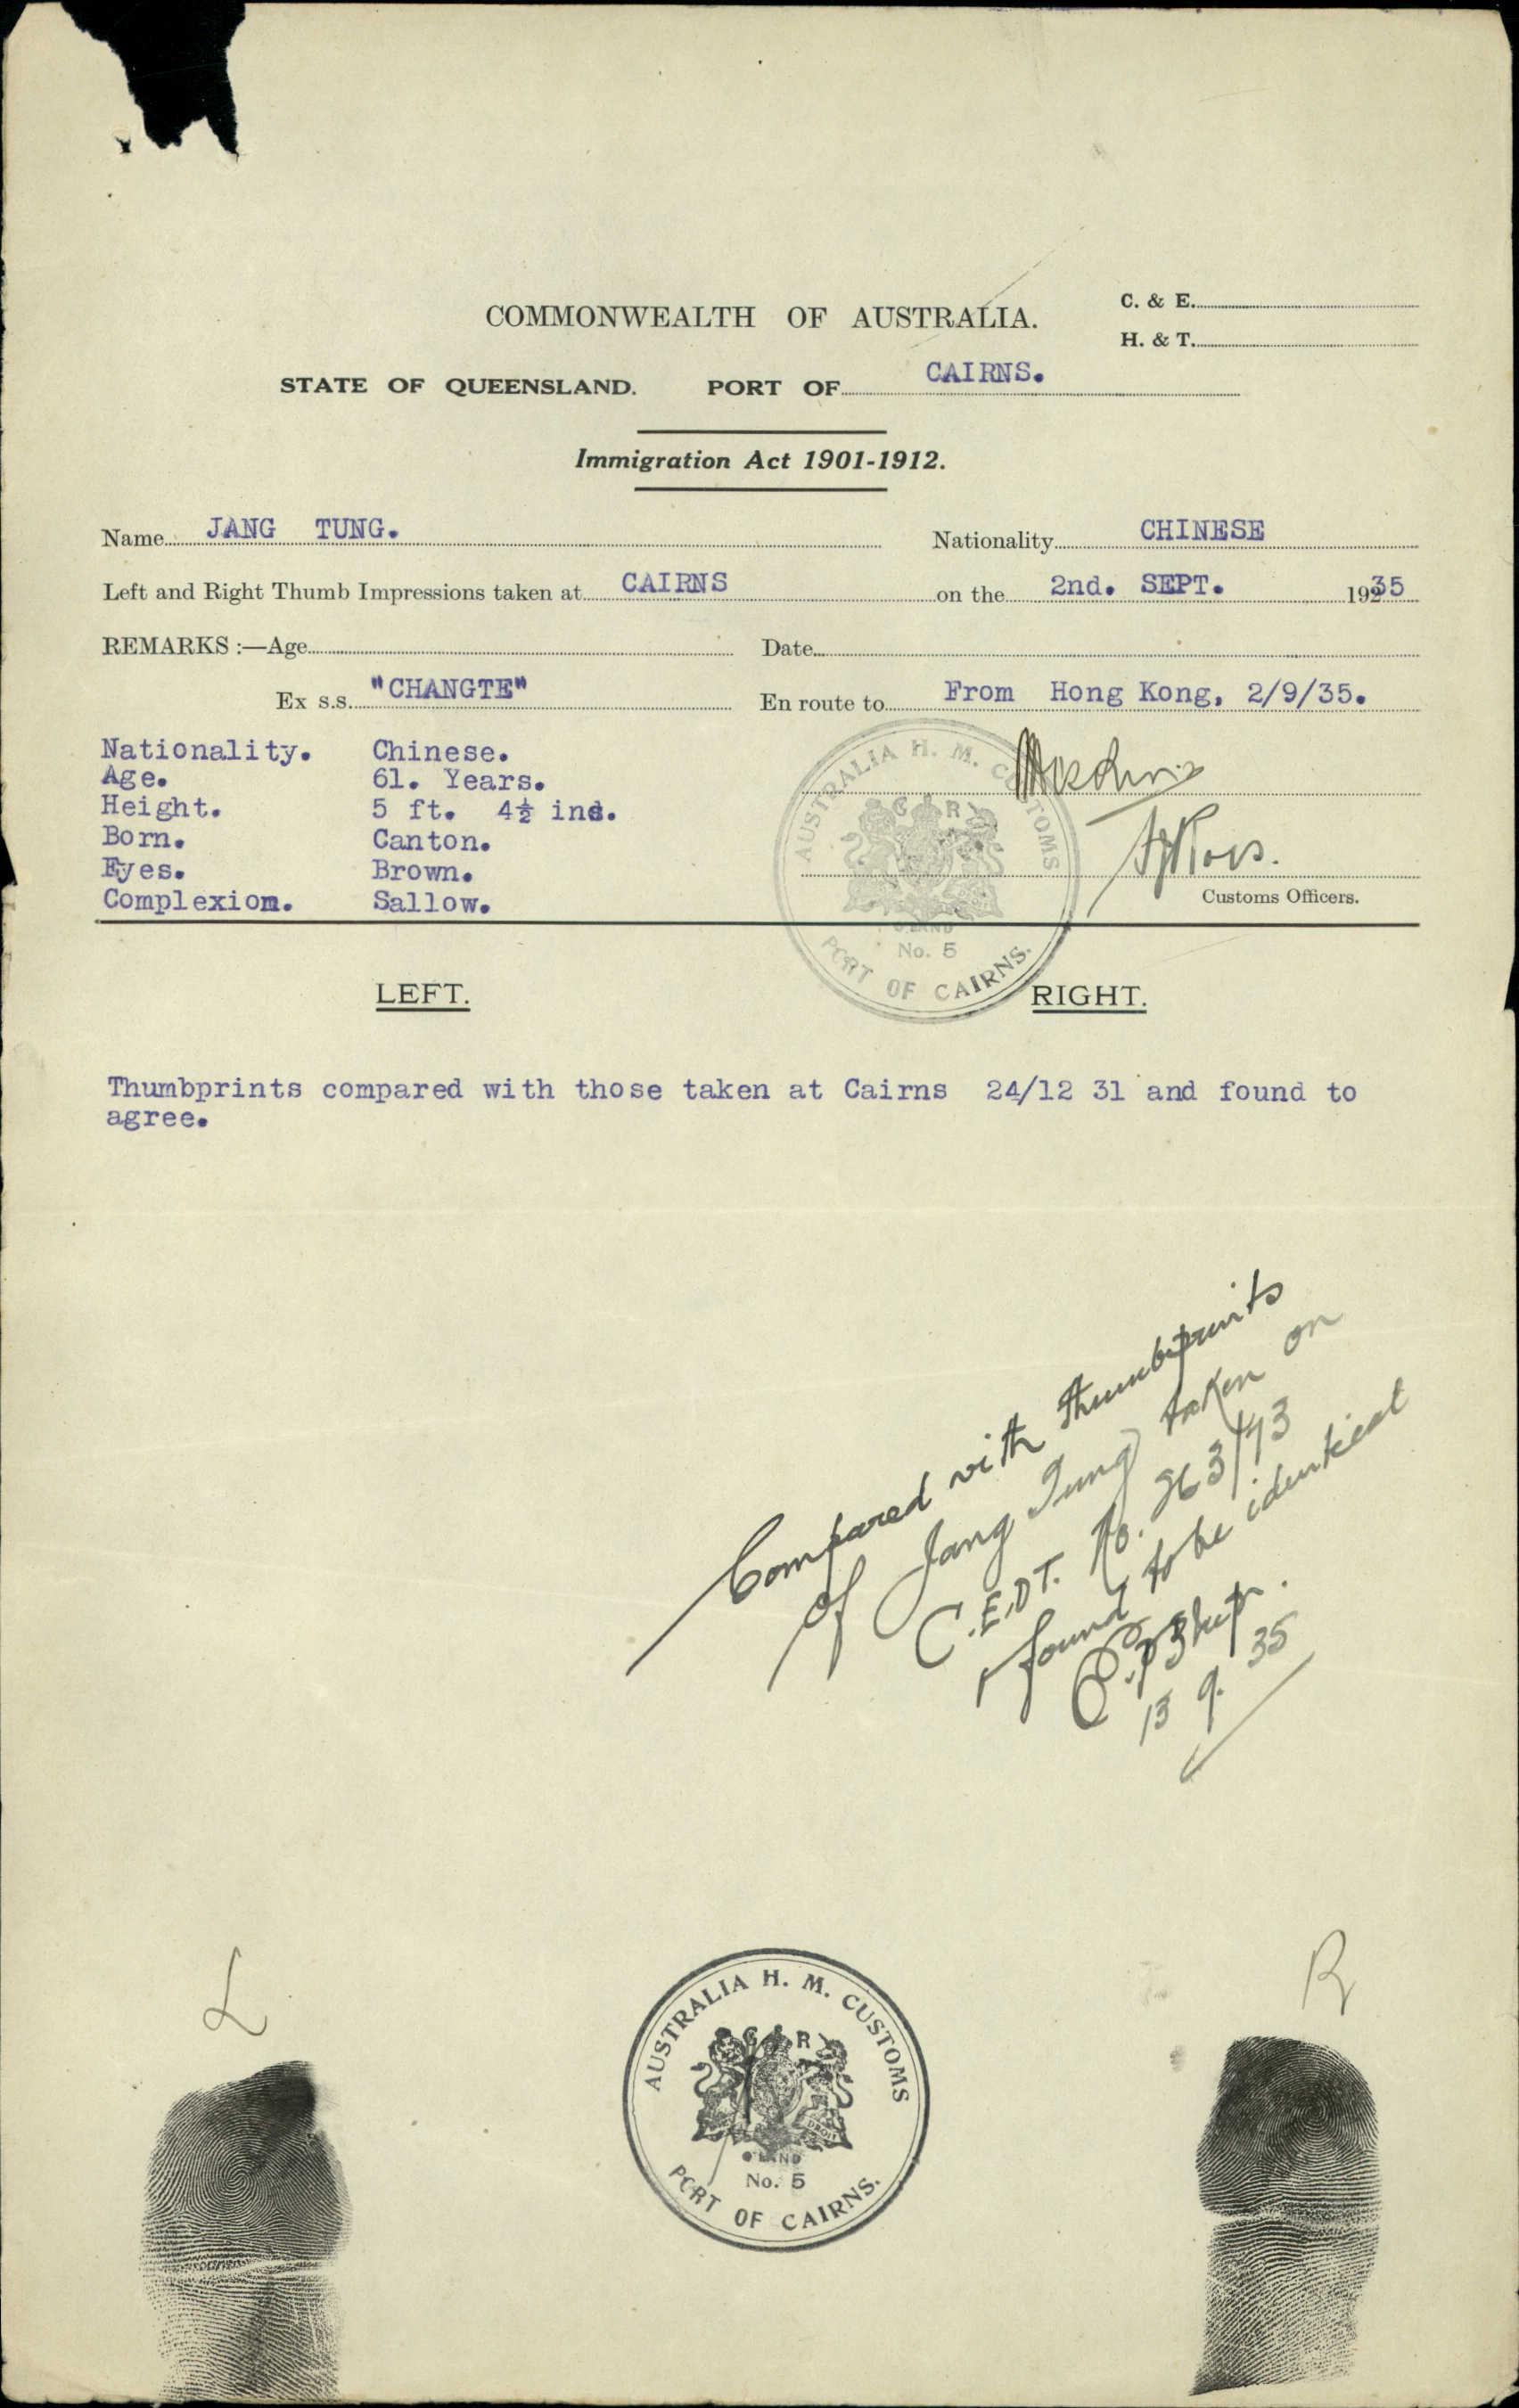 COMMONWEALTH OF AUSTRALIA.
C. & E.
H. & T.
STATE OF QUEENSLAND. PORT OF CAIRNS.
Immigration Act 1901-1912.
Name JANG TUNG. Nationality CHINESE
Left and Right Thumb Impressions taken at CAIRNS on the 2nd. SEPT. 1935
REMARKS :—Age Date
Ex s.s. "CHANGTE" En route to From Hong Kong, 2/9/35.
Nationality. Chinese.
Age. 61. Years.
Height. 5 ft. 4½ ins.
Born. Canton.
Eyes. Brown.
Complexion. Sallow.
Customs Officers.
AUSTRALIA H. M. CUSTOMS
G R
No. 5
PORT OF CAIRNS.
LEFT. RIGHT.
Thumbprints compared with those taken at Cairns 24/12 31 and found to
agree.
Compared with thumbprints
of Jang Tung taken on
C.E.D.T. No. 
found to be identical
13 9. 35
L R
AUSTRALIA H. M. CUSTOMS
G R
No. 5
PORT OF CAIRNS.